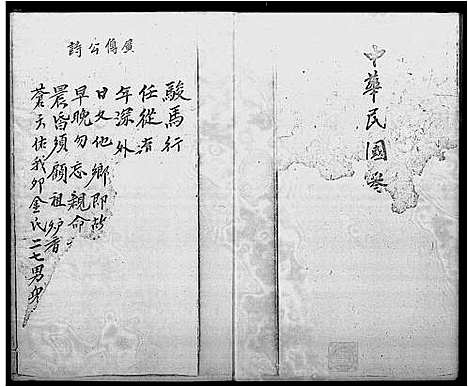 中華民國
廣傳公詩
駿馬行
任從
年深外
日久他鄉即故
早晚勿忘親命
晨昏須顧祖炉香
蒼天佑我卯金氏二七男